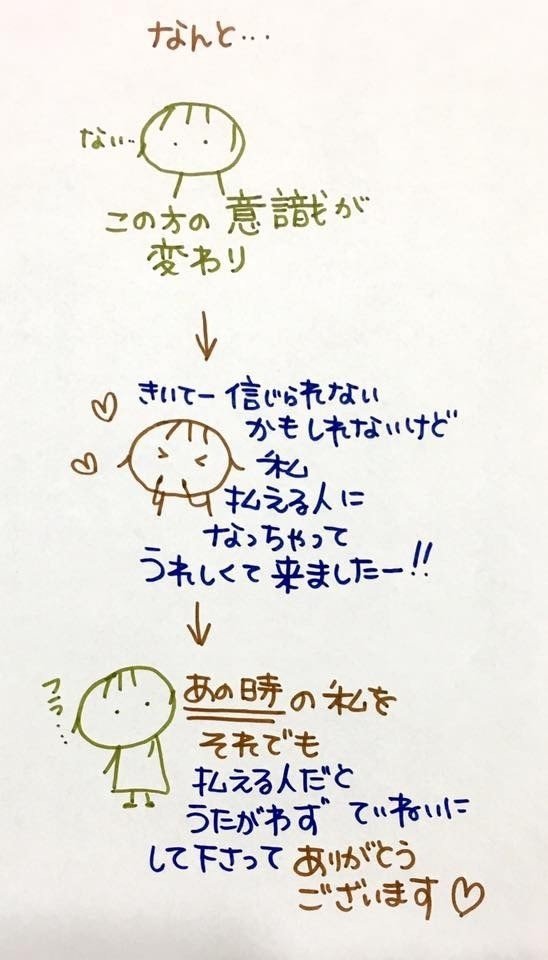 なんと…
ない…
この方の意識が
変わり
きいてー信じられない
かもしれないけど
私
払える人に
なっちゃって
うれしくて来ましたー!!
あの時の私を
それでも
払える人だと
うたがわず ていねいに
して下さって ありがとう
ございます♡